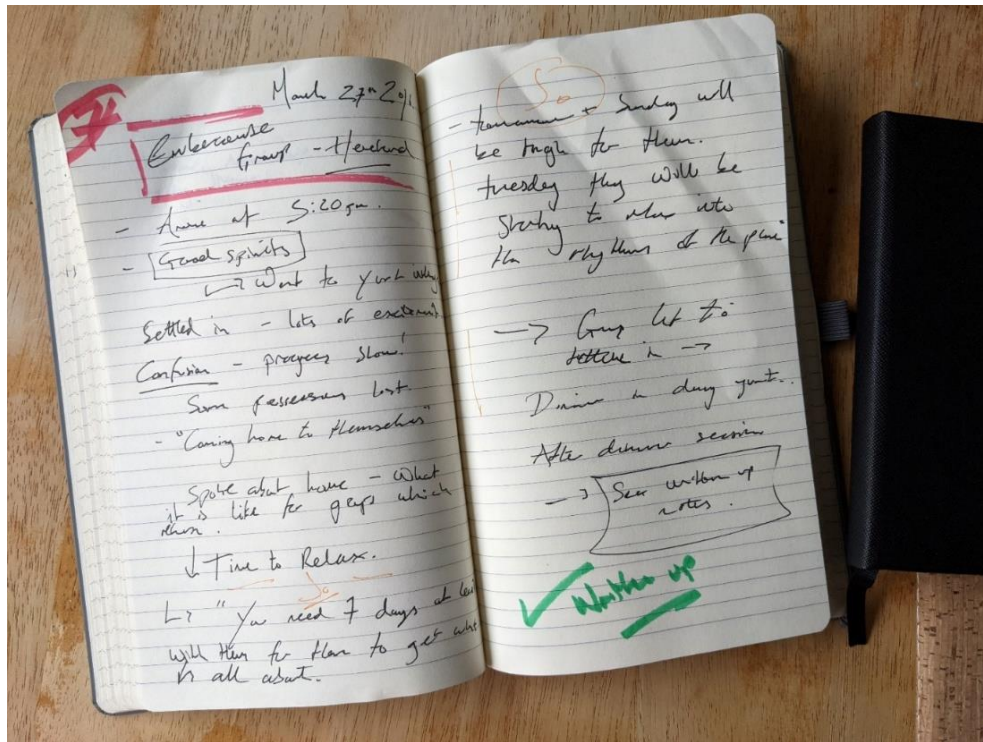 7
March 27th 201
Group - Hereford
- Arrive at 5:20pm.
- Good spirits
→ Want to
Settled in - lots of excitement
Confusion - progress slow!
Some possessions lost.
- "Coming home to themselves"
Spoke about home - What
it is like for groups which
return.
↓ Time to Relax.
↳ "You need 7 days at least
with them for them to get what
is all about.
So
- + Sunday will
be tough for them.
tuesday they will be
starting to relax into
the rhythms of the place
→ Group let to:
settle in →
Dinner in dining
After dinner session
→ See written up
notes.
✓ Written up